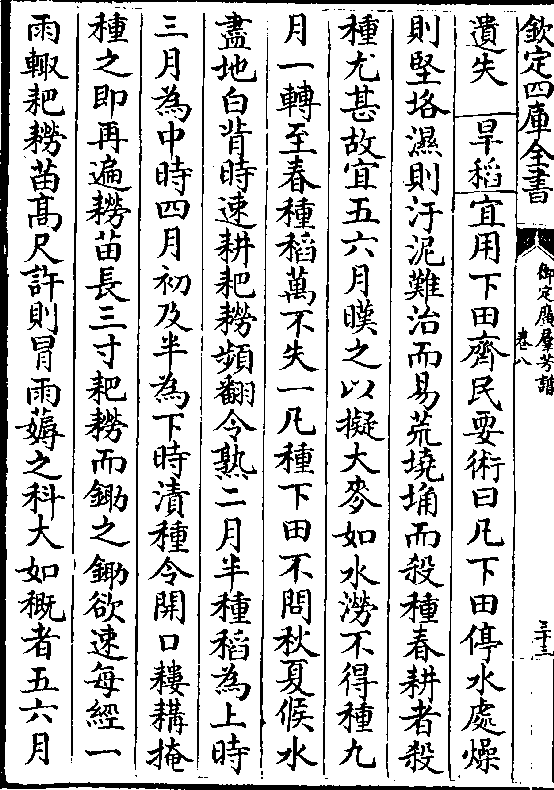 欽定四庫全書
御定廣羣芳譜
卷八
三十三
遺失　旱稻宜用下田齊民要術曰凡下田停水處燥
則堅垎濕則汙泥難治而易荒墝埆而殺種春耕者殺
種尤甚故宜五六月暵之以擬大麥如水澇不得種九
月一轉至春種稻萬不失一凡種下田不問秋夏候水
盡地白背時速耕耙耮頻翻令熟二月半種稻為上時
三月為中時四月初及半為下時漬種令開口耬耩掩
種之即再遍耮苗長三寸耙耮而鋤之鋤欲速每經一
雨輙耙耮苗髙尺許則冒雨薅之科大如穊者五六月